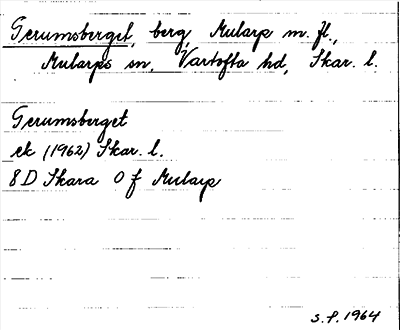 Gerumsberget, berg, Mularp m. fl.,
Mularps sn, Vartofta hd, Skar. l.
Gerumsberget
ek (1962) Skar. l.
8D Skara O f Mularp
S.P. 1964